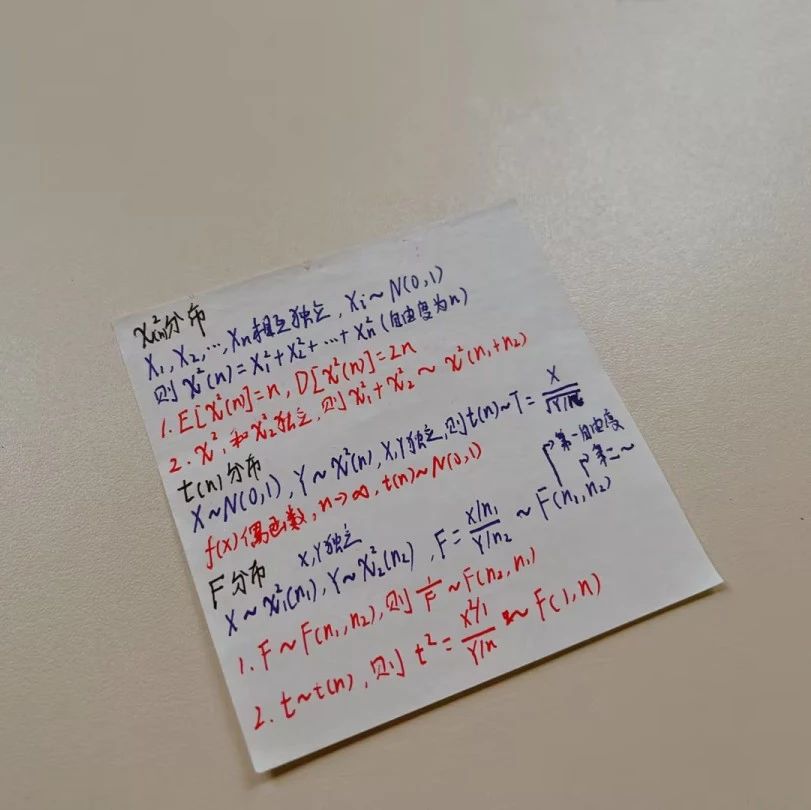 χ²(n)分布
X₁, X₂, ..., Xn相互独立, Xi ~ N(0,1)
则 χ²(n) = X₁² + X₂² + ... + Xn² (自由度为n)
1. E[χ²(n)] = n, D[χ²(n)] = 2n
2. χ²₁和χ²₂独立, 则χ²₁ + χ²₂ ~ χ²(n₁+n₂)
t(n)分布
X ~ N(0,1), Y ~ χ²(n), X,Y独立, 则t(n) ~ T = X/√Y/n
f(x)偶函数, n→∞, t(n) ~ N(0,1)
第一自由度
第二~
F分布 X,Y独立
X ~ χ²₁(n₁), Y ~ χ²₂(n₂), F = X/n₁ / Y/n₂ ~ F(n₁,n₂)
1. F ~ F(n₁,n₂), 则 1/F ~ F(n₂,n₁)
2. t ~ t(n), 则 t² = X²/1 / Y/n ~ F(1,n)